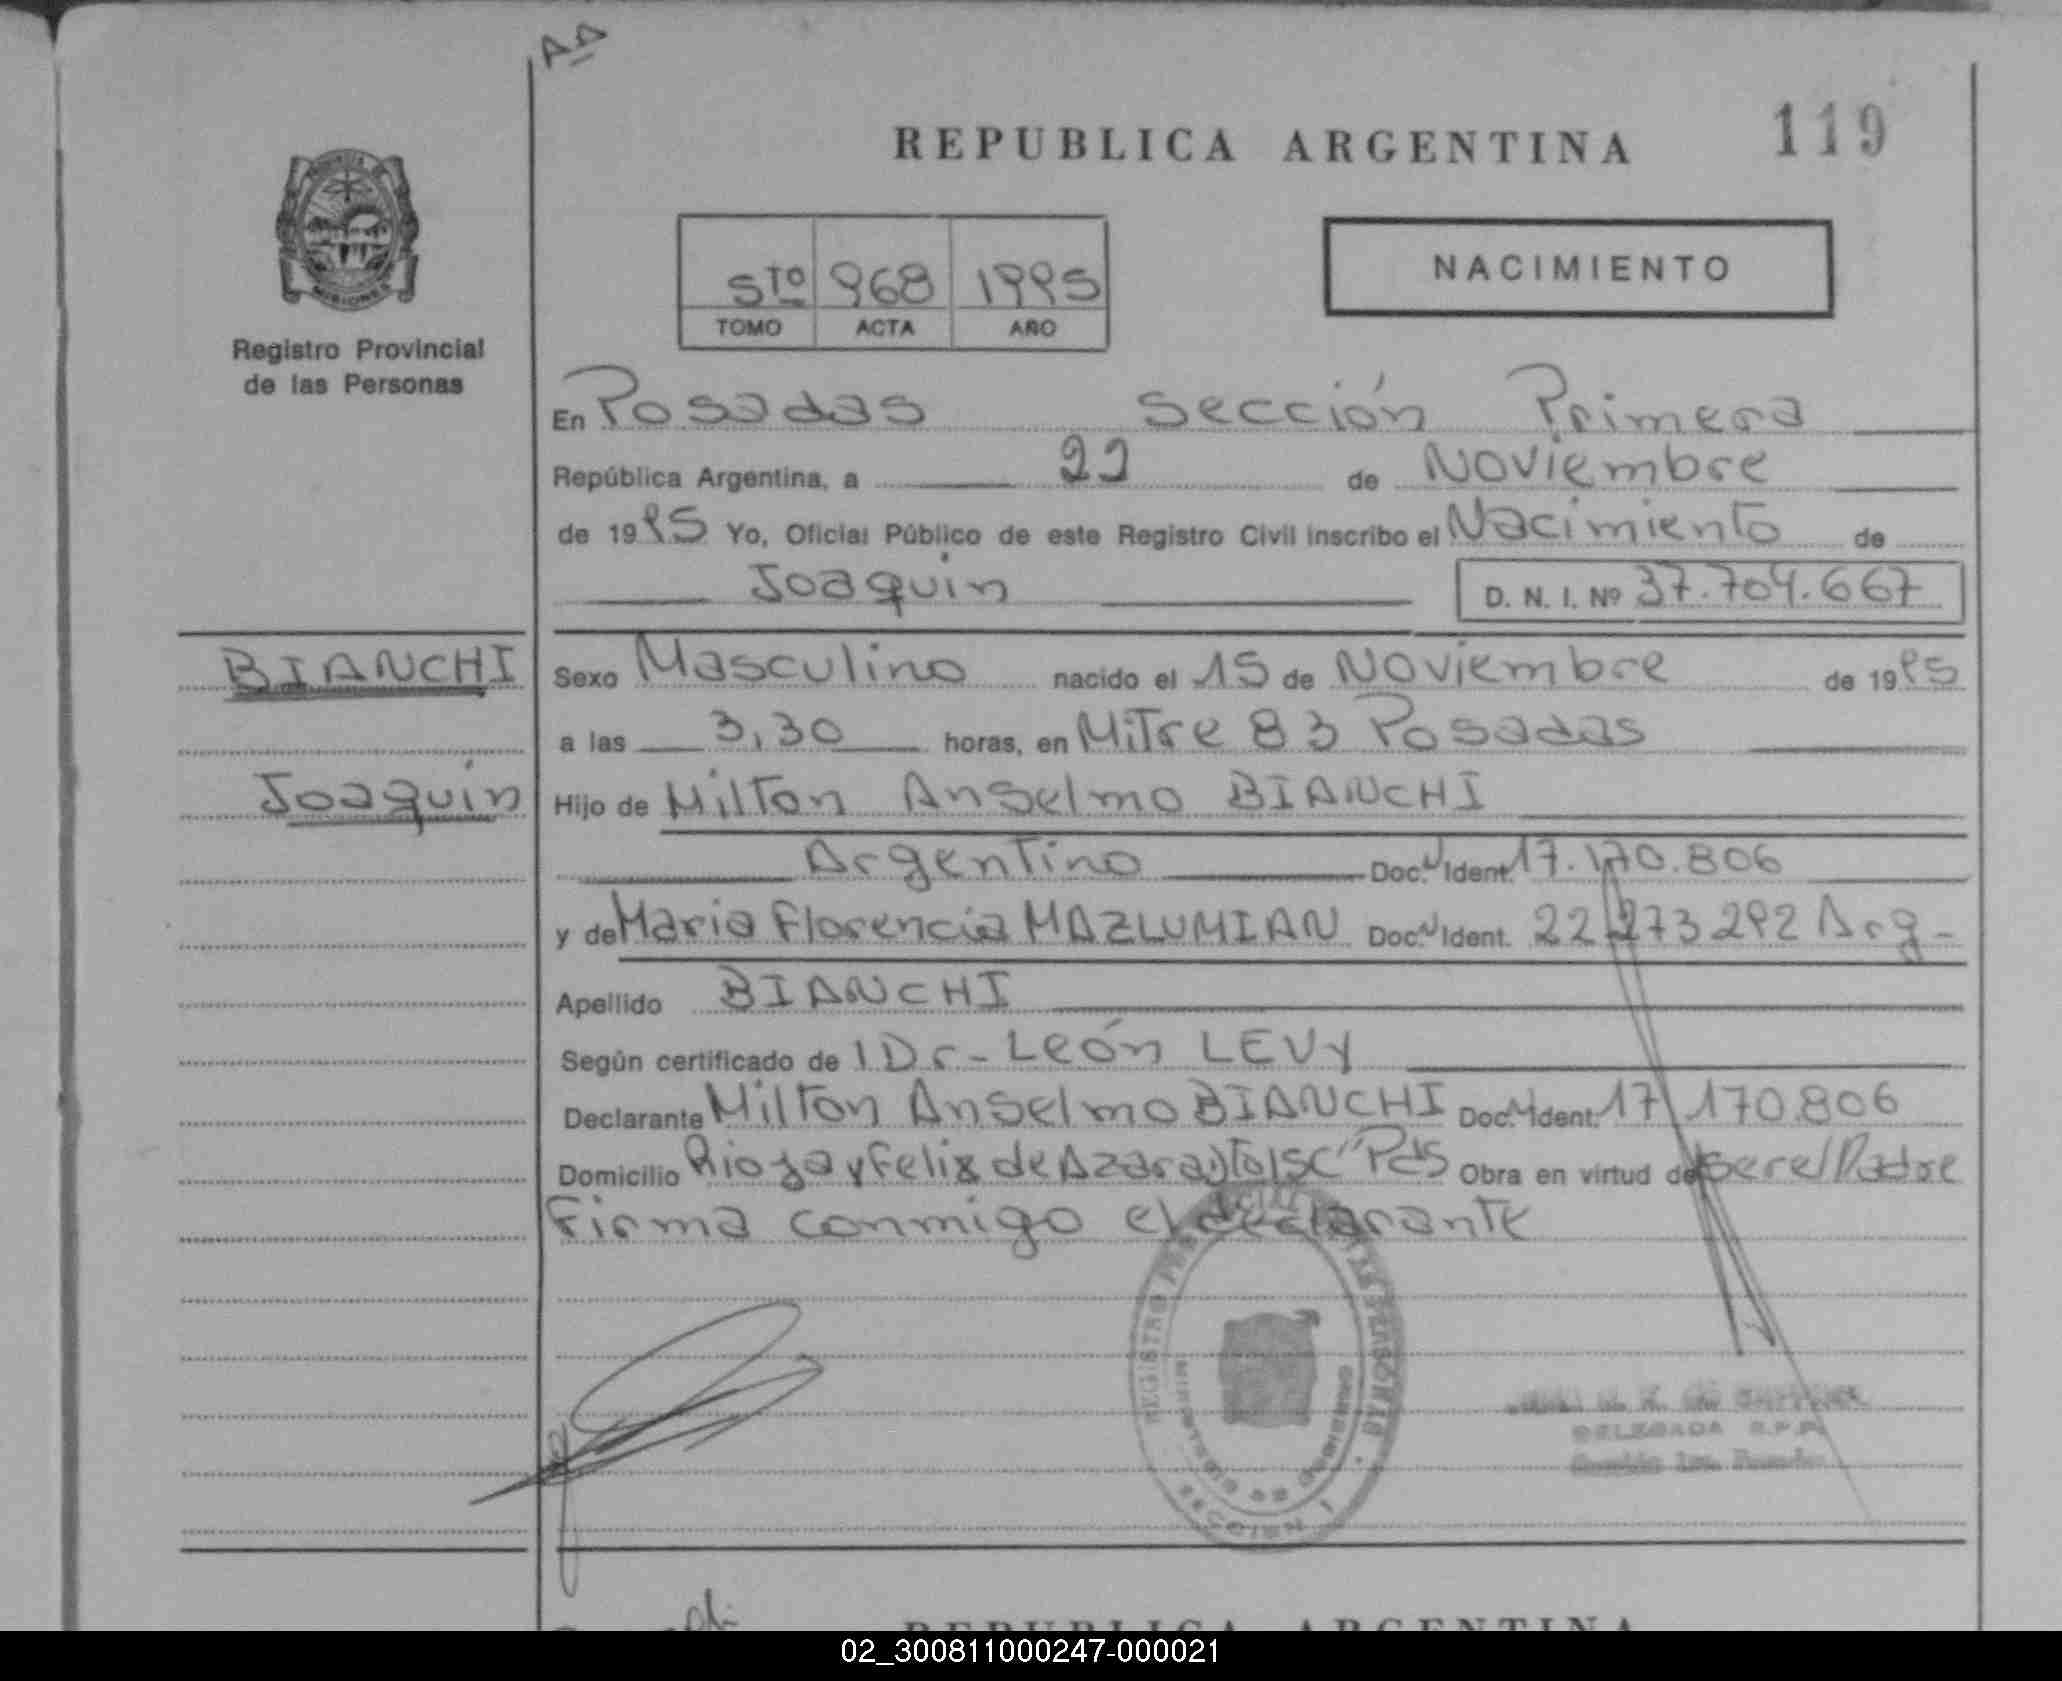 AA
REPUBLICA ARGENTINA 119
MISIONES
Registro Provincial
de las Personas
5TO 968 1995
TOMO ACTA AÑO
NACIMIENTO
En Posadas Sección Primera
República Argentina, a 22 de Noviembre
de 1995 Yo, Oficial Público de este Registro Civil inscribo el Nacimiento de
Joaquin D. N. I. Nº 37.704.667
BIANCHI
Joaquin
Sexo Masculino nacido el 15 de Noviembre de 1995
a las 3,30 horas, en Mitre 83 Posadas
Hijo de Milton Anselmo BIANCHI
Argentino Doc. Ident. 17.170.806
y de Maria Florencia MAZLUMIAN Doc. Ident. 22 273 292 Arg-
Apellido BIANCHI
Según certificado de l Dr- León LEVY
Declarante Milton Anselmo BIANCHI Doc. Ident. 17 170.806
Domicilio Rioja y Felix de Azara Pds Obra en virtud de ser el Padre
Firma conmigo el declarante
REGISTRO DE LAS PERSONAS
MINISTERIO DE GOBIERNO
SECCION 1
DELEGADA R.P.P.
Sección 1ra. Posadas
REPUBLICA ARGENTINA
02_300811000247-000021